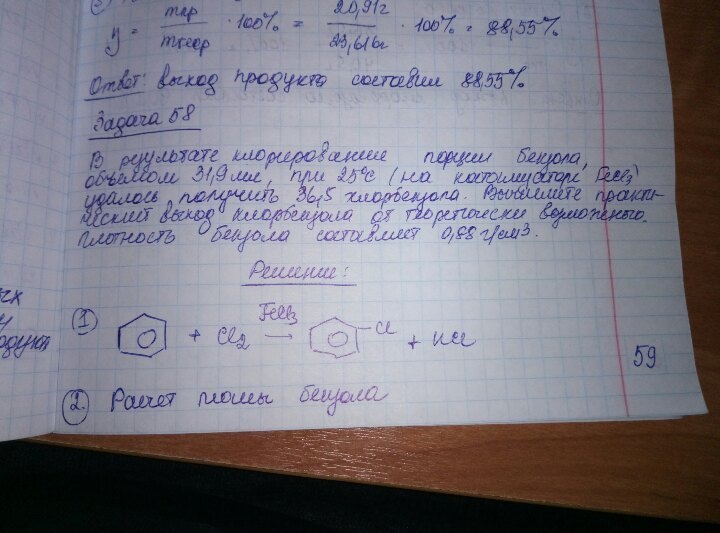 y = mпр / mтеор · 100% = 20,91г / 23,616г · 100% = 88,55%
Ответ: выход продукта составил 88,55%
Задача 58
В результате хлорирования порции бензола,
объёмом 31,9 мл, при 25°С (на катализаторе FeCl3)
удалось получить 36,5 хлорбензола. Вычислите практи-
ческий выход хлорбензола от теоретически возможного.
Плотность бензола составляет 0,88 г/см3.
Решение:
1 + Cl2 FeCl3 → Cl + HCl
59
2. Расчет массы бензола